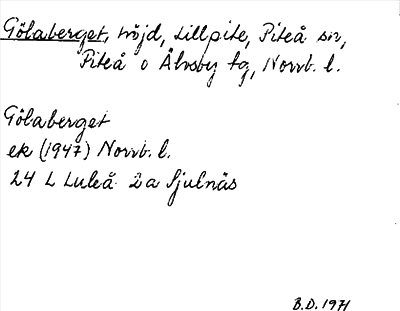 Gölaberget, höjd, Lillpite, Piteå sn,
Piteå o Älvsby tg, Norrb. l.
Gölaberget
ek (1947) Norrb. l.
24 L Luleå 2a Sjulnäs
B.D. 1971